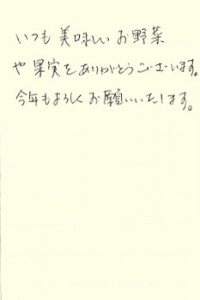 いつも美味しいお野菜
や果実をありがとうございます。
今年もよろしくお願いいたします。